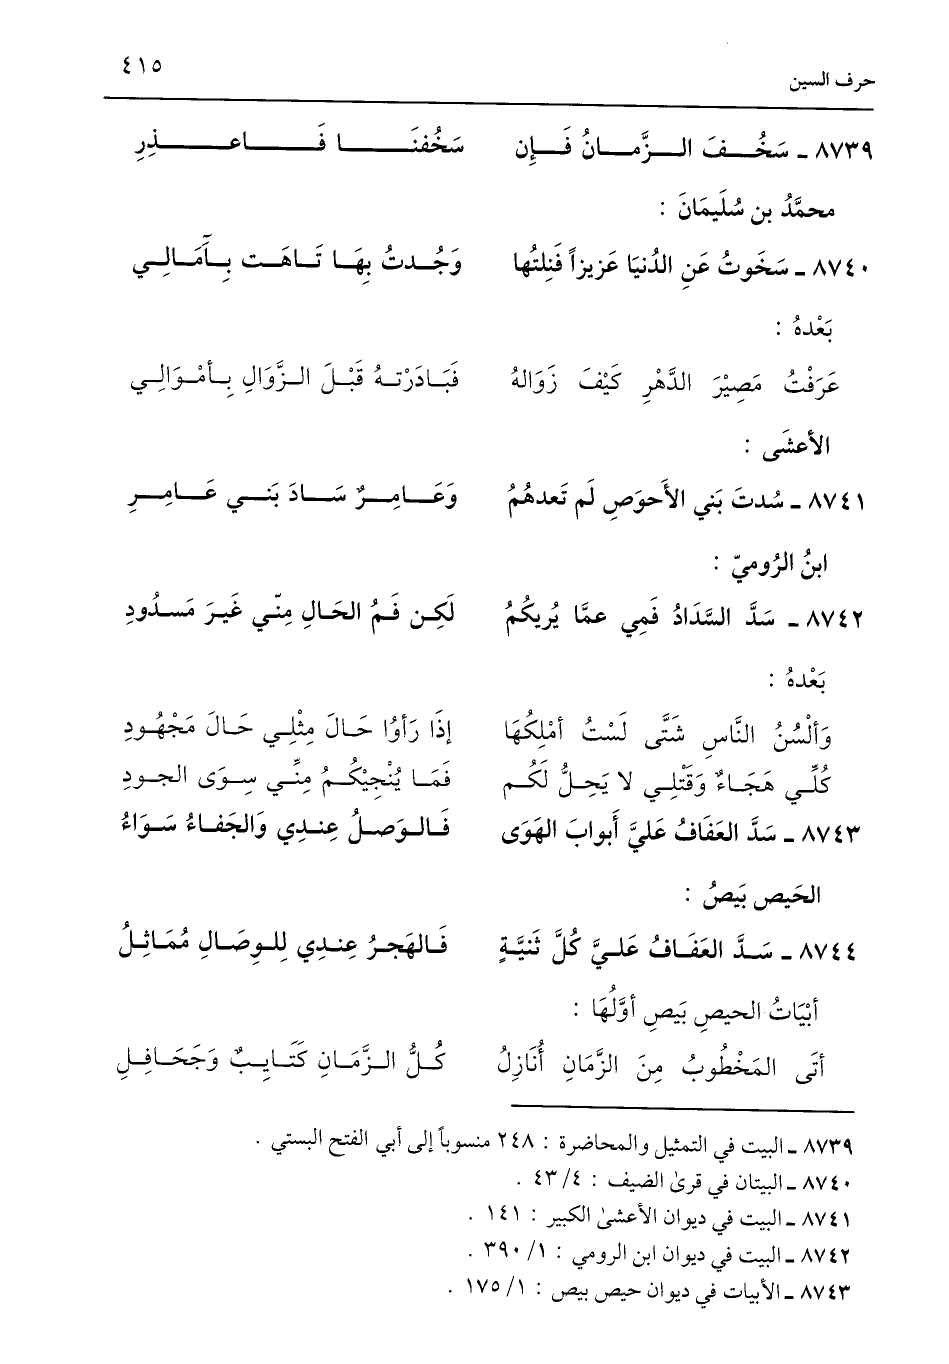 ٤١٥
حرف السين
٨٧٣٩ ـ سَخُفَ الزَّمانُ فَإِن سَخُفنَا فَاعذِرِ
محمَّدُ بن سُلَيمَانَ :
٨٧٤٠ ـ سَخَوتُ عَنِ الدُنيَا عَزيزاً فَنِلتُها وَجُدتُ بِهَا تَاهَت بِآمَالِي
بَعْدهُ :
عَرَفْتُ مَصِيْرَ الدَّهْرِ كَيْفَ زَوَالهُ فَبَادَرْتهُ قَبْلَ الزَّوَالِ بِأمْوَالِي
الأعشَى :
٨٧٤١ ـ سُدتَ بَني الأحوَصِ لَم تَعدهُمُ وَعَامِرٌ سَادَ بَني عَامِرِ
ابنُ الرُوميّ :
٨٧٤٢ ـ سَدَّ السَّدَادُ فَمِي عمَّا يُريكُمُ لَكِن فَمُ الحَالِ مِنّي غَيرَ مَسدُودِ
بَعْدهُ :
وَألْسُنُ النَّاسِ شَتَّى لَسْتُ أمْلِكُهَا إذَا رَأوْا حَالَ مِثْلِي حَالَ مَجْهُودِ
كُلِّي هَجَاءٌ وَقَتْلِي لا يَحِلُّ لَكُم فَمَا يُنْجِيْكُمُ مِنِّي سِوَى الجودِ
٨٧٤٣ ـ سَدَّ العَفَافُ عَليَّ أَبوابَ الهَوَى فَالوَصلُ عِندِي وَالجَفاءُ سَوَاءُ
الحَيص بَيصُ :
٨٧٤٤ ـ سَدَّ العَفَافُ عَليَّ كُلَّ ثَنيَّةٍ فَالهَجرُ عِندِي لِلوِصَالِ مُمَاثِلُ
أبْيَاتُ الحيصِ بَيصِ أوَّلُهَا :
أتَى المَخْطُوبُ مِنَ الزَّمَانِ أُنَازِلُ كُلُّ الزَّمَانِ كَتَايِبٌ وَجَحَافِلِ
٨٧٣٩ ـ البيت في التمثيل والمحاضرة : ٢٤٨ منسوباً إلى أبي الفتح البستي .
٨٧٤٠ ـ البيتان في قرىٰ الضيف : ٤/ ٤٣ .
٨٧٤١ ـ البيت في ديوان الأعشىٰ الكبير : ١٤١ .
٨٧٤٢ ـ البيت في ديوان ابن الرومي : ١/ ٣٩٠ .
٨٧٤٣ ـ الأبيات في ديوان حيص بيص : ١/ ١٧٥ .